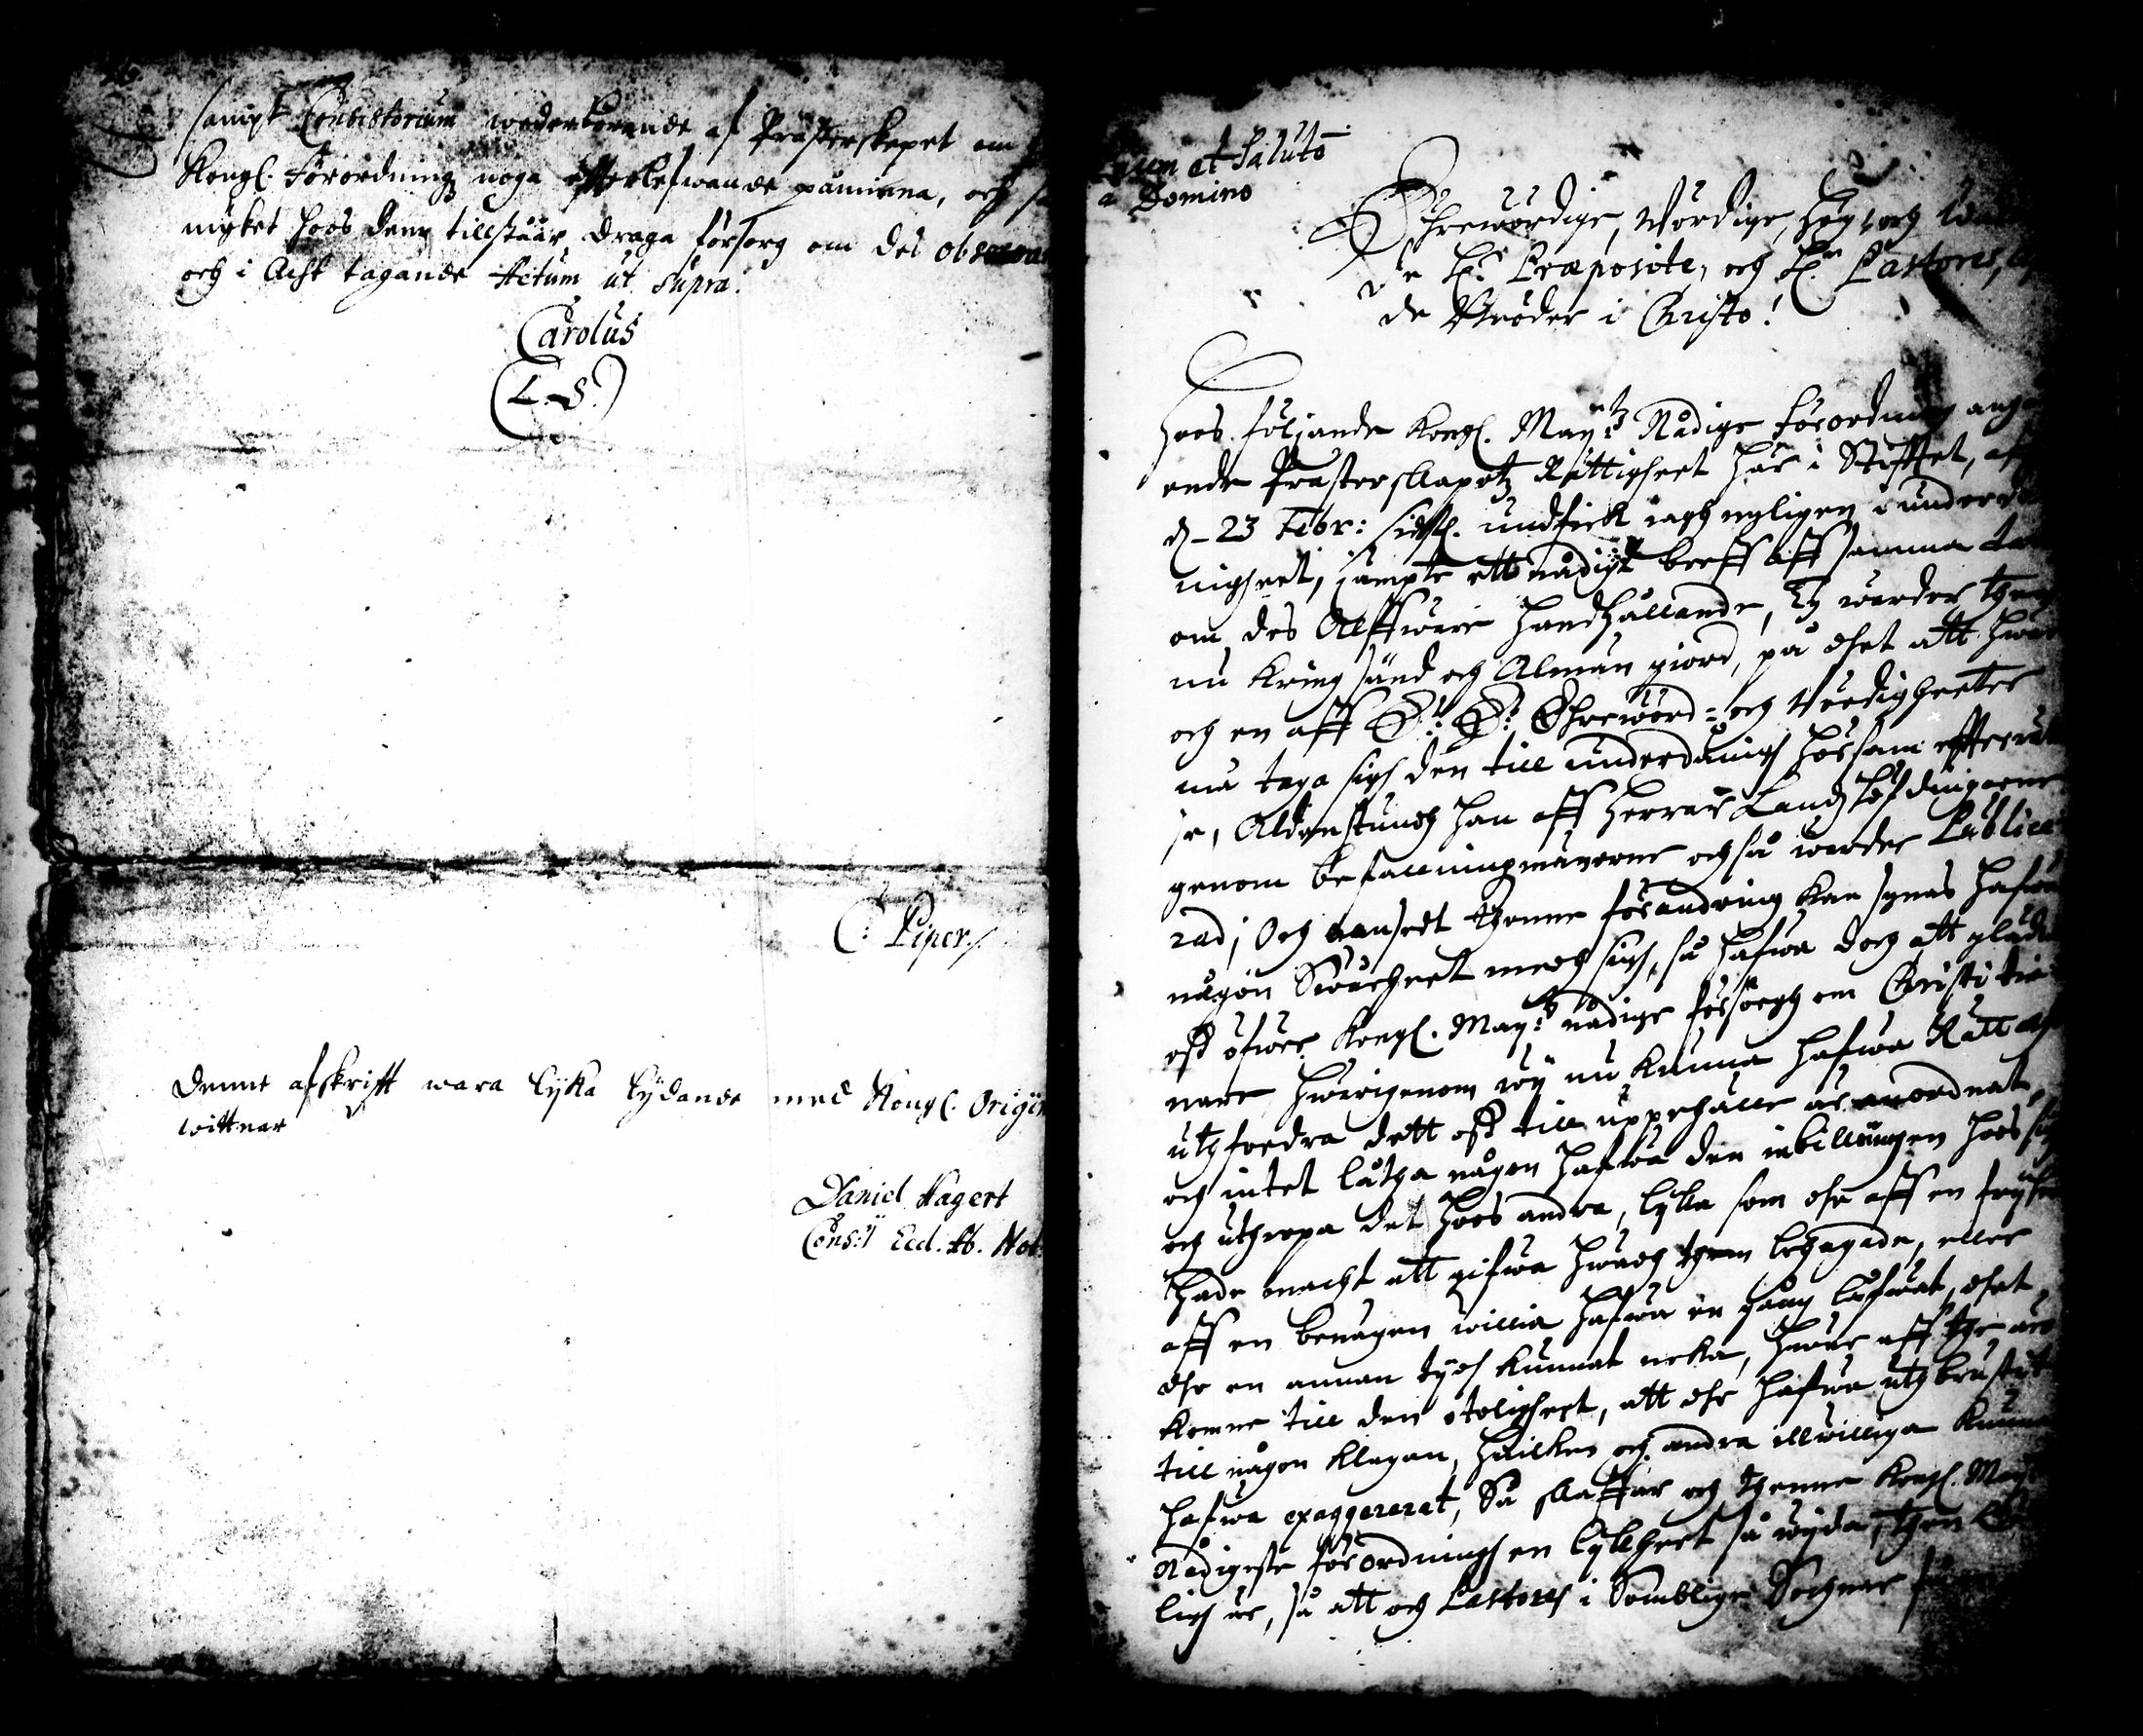 sampt Consistorium wederbörande af Prästerskapet om
Kongl. Förordning noga efterlefwande påminna, och så
myket hoos dem tillstäår, draga försorg om des observa
och i Acht tagande Actum ut supra.
Carolus
(L.S.)
C: Piper/.
Denne afskrifft wara lyka lydande med Kongl. Origin
wittnar
Daniel Hagert
Cons:ij Eccl. Ab. Not:
et Salutē
a Domino
Ehrewördige, Wördige, Hög och Wäl
de H:r Præposite, och H:r Pastores,
de Bröder i Christo!
Hoos följande Kongl. May:tz Nådige förordning angå
ende Prästerskapetz Rättigheet här i Stifftet, af
d. 23 Febr: sidstl. undfick iagh nyligen i underdå
nigheet, jämpte ett nådigt breff aff samma
om des Alffware handhållande, Ty warder then
nu kring sänd och Almän giord, på thet att hwar
och en aff E:r E:r Ehrewörd- och Wördigheeter
må taga sigh den till underdånigh hörsam effterrät
se, Aldenstundh han aff Herrar Landzhöfdingarne
genom befallningzmännerne också warder Publice
rad; Och oansedt thenne förändring kan synas hafwa
någon Swårheet medh sigh, så hafwa doch att glädia
oss öfwer Kongl. May:tz nådige försorgh om Christi tie
nare hwarigenom wij nu kunna hafwa Rätt
uthfordra dett oss till uppehälle är anordnat,
och intet låtha någon hafwa den inbillningen hoos sig
och uthropa det hoos andra, lyka som the aff en frij
hade macht att gifwa hwadh them behagade, eller
aff en benägen willia hafwa en gång låfwat, thet
the en annan tijdh kunnat neka, hwar aff the äre
komne till den otoligheet, att the hafwa uthbrustit
till någon klagan, hwilken och andra illwilliga kunna
hafwa exaggererat, Så skattar och thenne Kongl. May:tz
Nådigeste förordningh en lykheet så wyda, then
ligh är, så att och Pastores i Somblige Sochnar